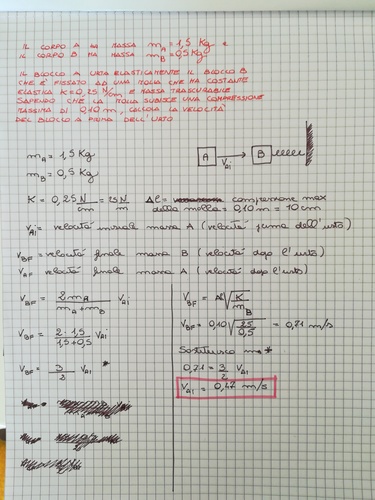 IL CORPO A HA MASSA mA = 1,5 Kg e
IL CORPO B HA MASSA mB = 0,5 Kg
IL BLOCCO A URTA ELASTICAMENTE IL BLOCCO B
CHE E' FISSATO AD UNA MOLLA CHE HA COSTANTE
ELASTICA K = 0,25 N/cm E MASSA TRASCURABILE
SAPENDO CHE LA MOLLA SUBISCE UNA COMPRESSIONE
MASSIMA DI 0,10 m, CALCOLA LA VELOCITA'
DEL BLOCCO A PRIMA DELL'URTO
mA = 1,5 Kg
mB = 0,5 Kg
A VAi B
K = 0,25 N/cm = 25 N/m Δl = compressione max
della molla = 0,10 m = 10 cm
VAi = velocità iniziale massa A (velocità prima dell'urto)
VBF = velocità finale massa B (velocità dopo l'urto)
VAF velocità finale massa A (velocità dopo l'urto)
VBF = 2mA / mA + mB VAi
VBF = 2 · 1,5 / 1,5 + 0,5 VAi
VBF = 3 / 2 VAi *
VBF = Δl √K / mB
VBF = 0,10 √25 / 0,5 = 0,71 m/s
Sostituisco in *
0,71 = 3 / 2 VAi
VAi = 0,47 m/s